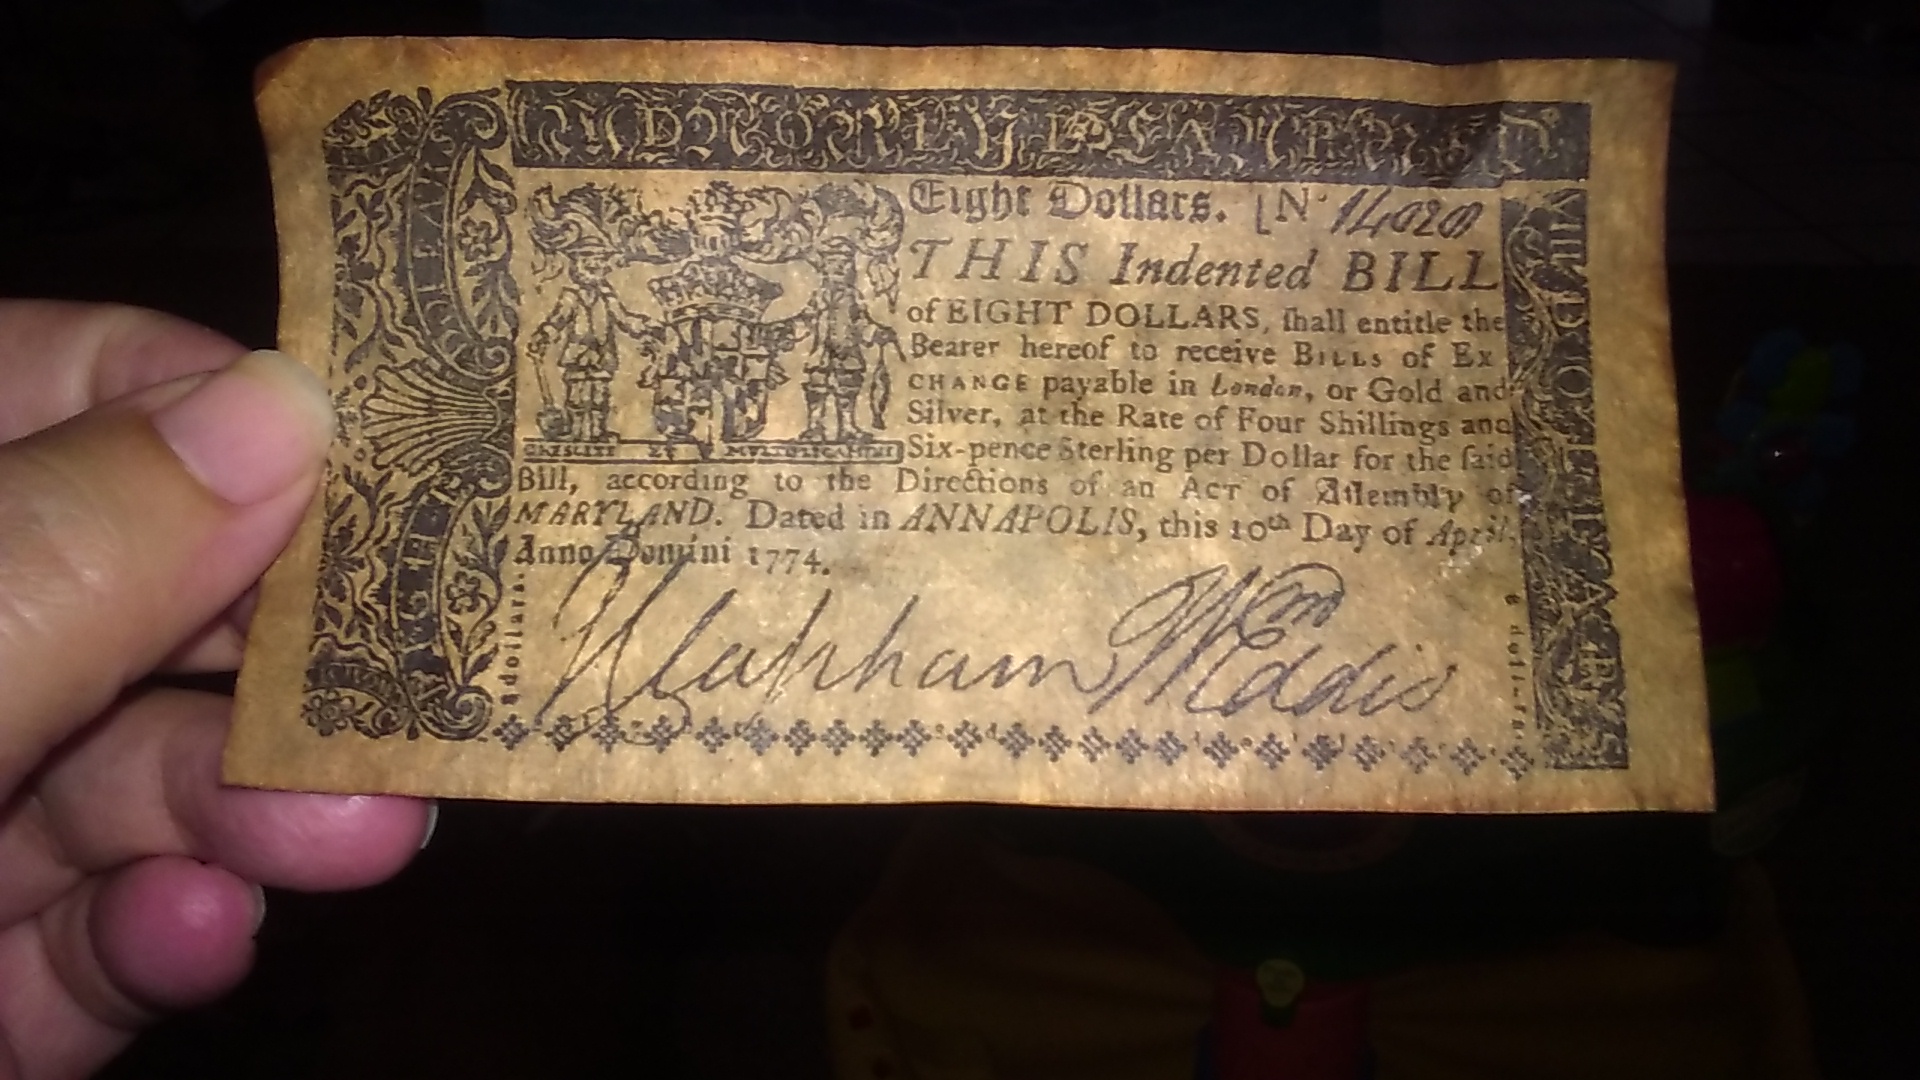 Eight Dollars. [N.º 14020
THIS Indented BILL
of EIGHT DOLLARS, ſhall entitle the
Bearer hereof to receive BILLS of Ex
CHANGE payable in London, or Gold and
Silver, at the Rate of Four Shillings and
Six-pence Sterling per Dollar for the ſaid
CRESCITE ET MULTIPLICAMINI
Bill, according to the Directions of an ACT of Aſſembly of
MARYLAND. Dated in ANNAPOLIS, this 10th Day of April.
Anno Domini 1774.
Clapham Wm Eddis
8 dollars.
EIGHT